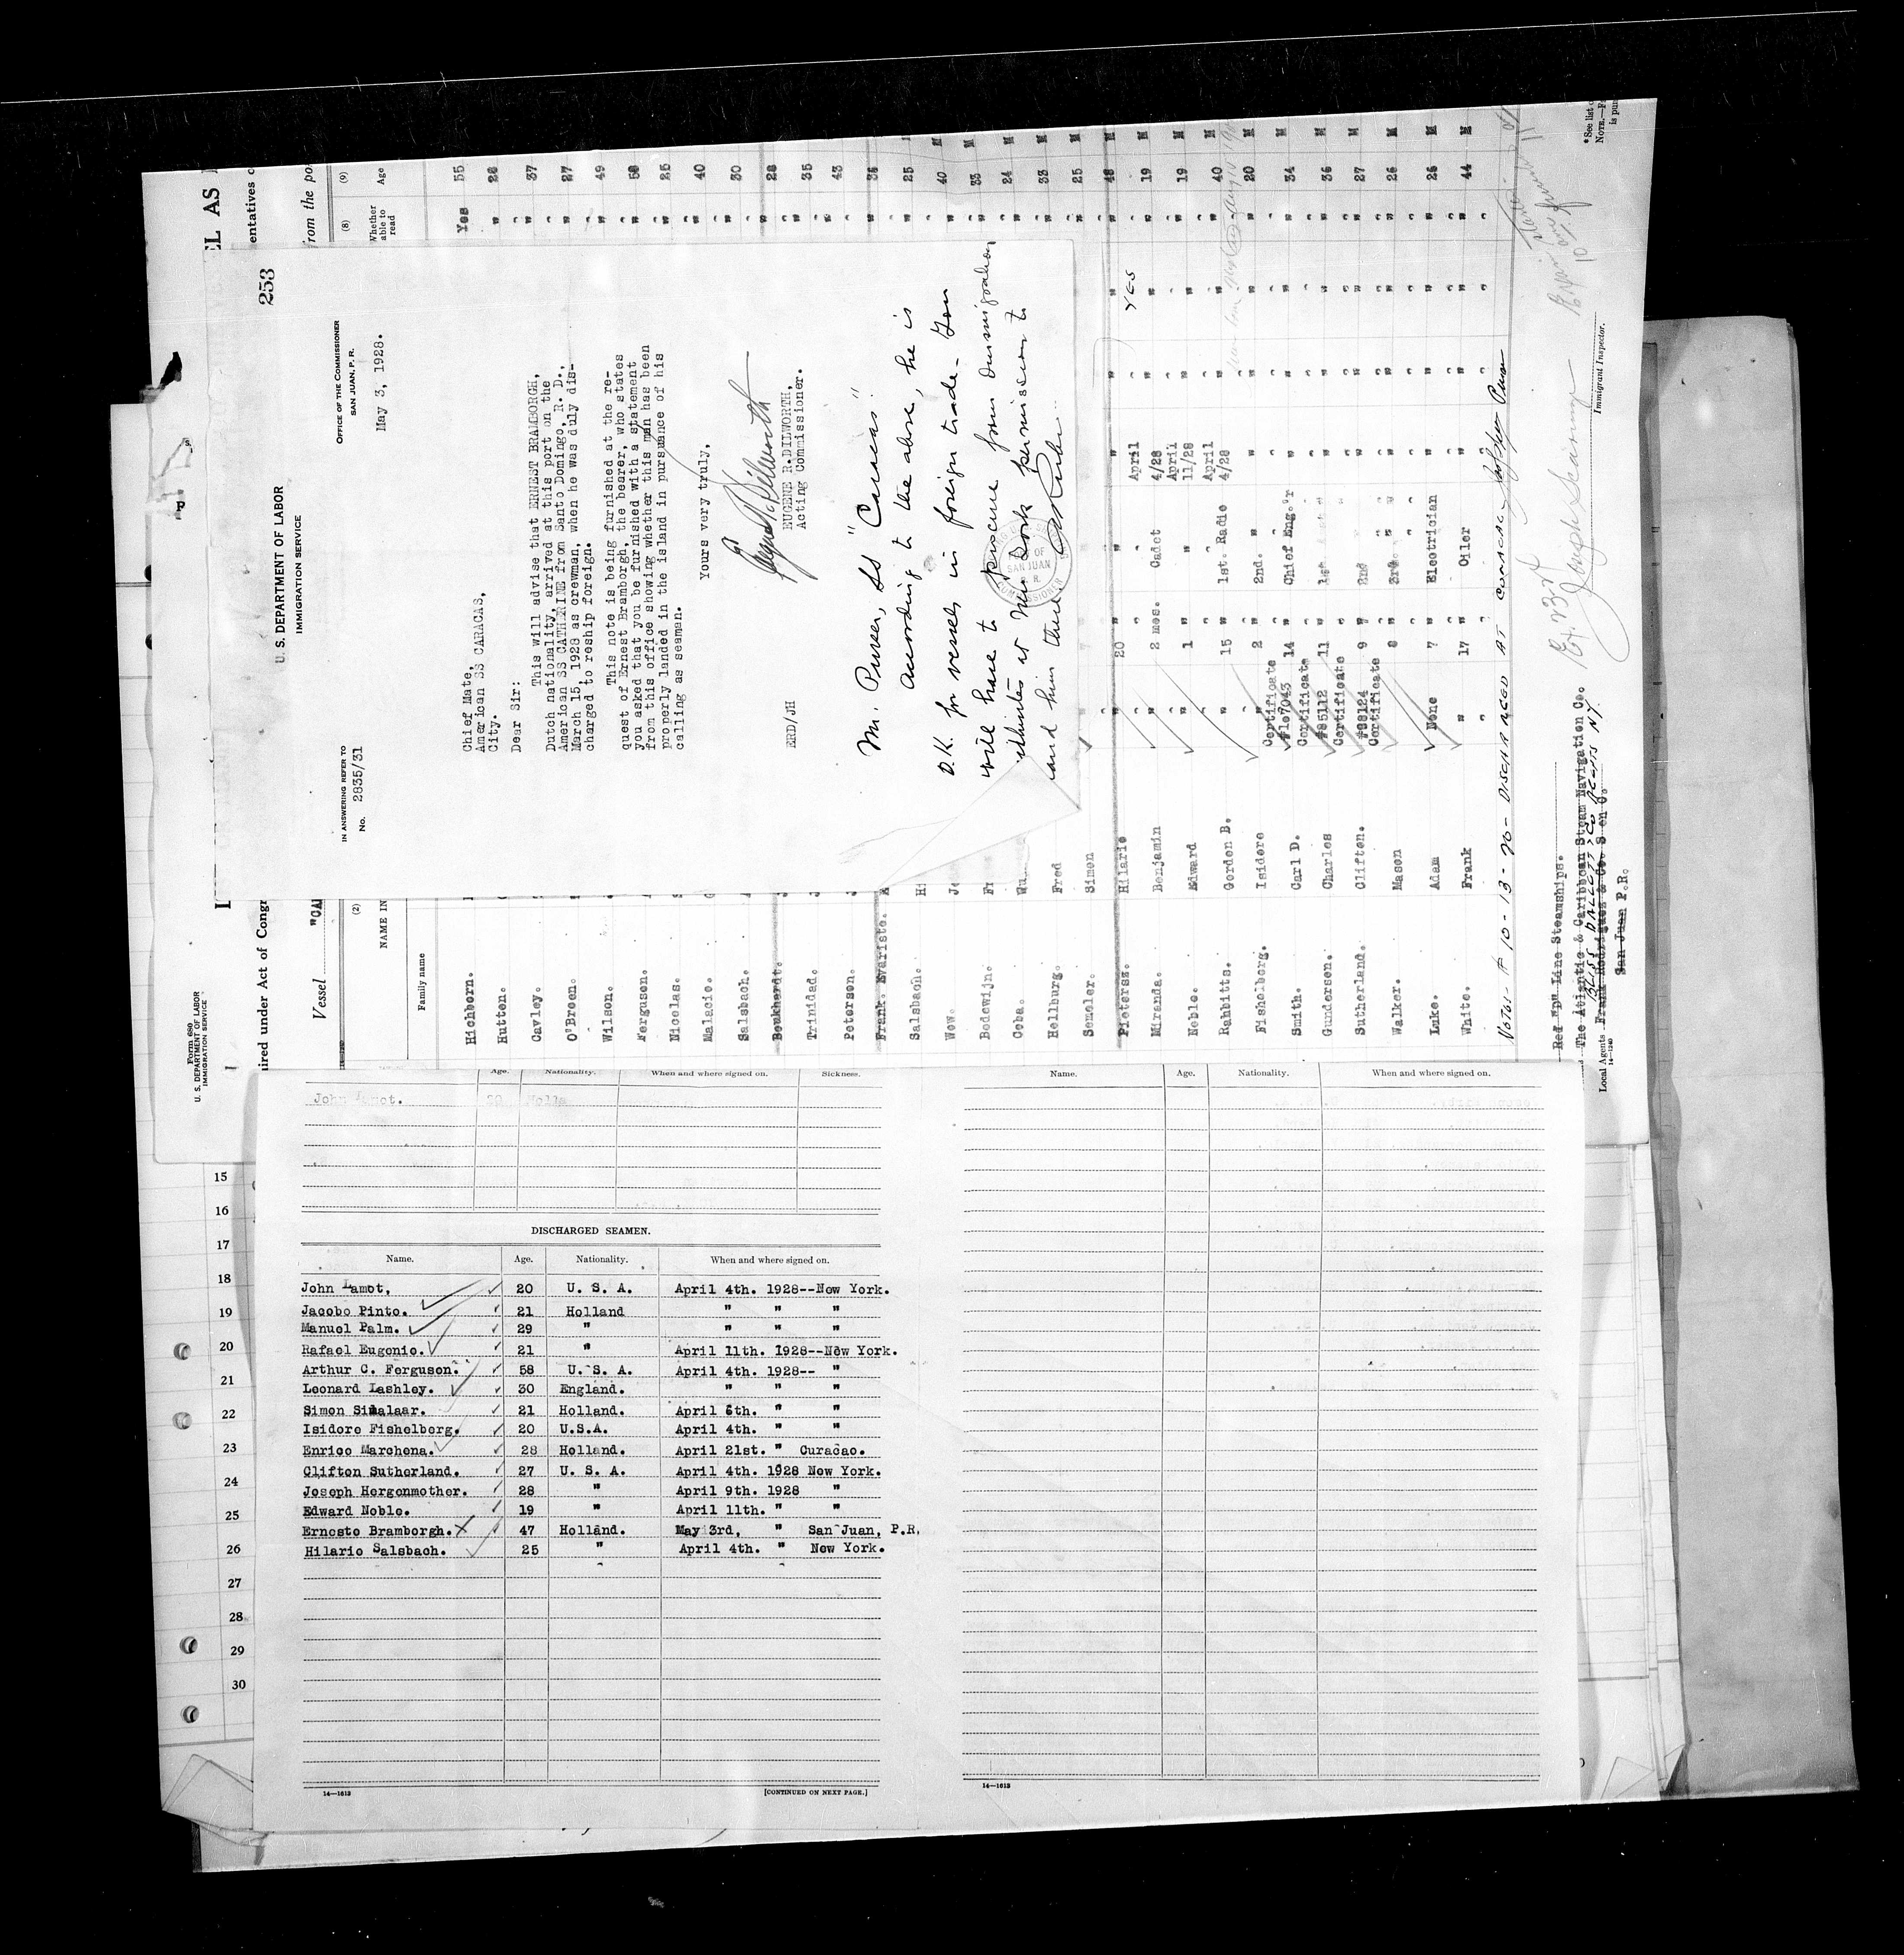 253
U. S. DEPARTMENT OF LABOR
IMMIGRATION SERVICE
OFFICE OF THE COMMISSIONER
SAN JUAN, P. R.
IN ANSWERING REFER TO
No. 2835/31
May 3, 1928.
Chief Mate,
American SS CARACAS,
City.
Dear Sir:
This will advise that ERNEST BRAMBORGH,
Dutch nationality, arrived at this port on the
American SS CATHERINE from Santo Domingo, R. D.,
March 15, 1928 as crewman, when he was duly dis-
charged to reship foreign.
This note is being furnished at the re-
quest of Ernest Bramborgh, the bearer, who states
you asked that you be furnished with a statement
from this office showing whether this man has been
properly landed in the island in pursuance of his
calling as seaman.
Yours very truly,
EUGENE R. DILWORTH,
Acting Commissioner.
ERD/JH
Mr. Purser, SS "Caracas"
According to the above, he is
O.K. for vessels in foreign trade. You
will have to procure from Immigration
at New York permission to
land him there.
EL AS
entatives o
from the po
(8)
Whether able to read
(9)
Age
Form 680
U. S. DEPARTMENT OF LABOR
IMMIGRATION SERVICE
ired under Act of Congr
Vessel "CA
(2)
NAME IN
Family name
Hichborn. Yes 55
Hutton. " 28
Cavley. " 37
O'Breen. " 27
Wilson. " 49
Ferguson. " 58
Nicolas. " 25
Malacio. " 40
Salsbach. " 30
Boukhardt. " 28
Trinidad. " 35
Peterson. " 43
Frank. Evaristo. " 36
Salsbach. " 25
Wowo. " 40
Bodewijn. " 33
Coba. " 24
Hellburg. Fred " 33
Semeler. Simon " 25
Pietersz. Hilario 20 " " " " 48 M
Miranda. Benjamin 2 mos. Cadet April 4/28 YES " 19 M
Noble. Edward 1 " April 11/28 " " 19 M
Rabbitts. Gordon B. 15 1st. Radio April 4/28 " " 40 M
Fishelberg. Isidore 2 2nd. " " " " 20 M
Smith. Carl D. Certificate #1e7043 14 Chief Eng.'r " " " 34 M
Gundersen. Charles Certificate #85112 11 1st " " " " 36 M
Sutherland. Clifton. Certificate #88124 9 2nd " " " " 27 M
Walker. Mason Certificate 8 3rd " " " " 26 M
Luke. Adam None 7 Electrician " " " 26 M
White. Frank " 17 Oiler " " " 44 M
Note:- # 10 - 13 - 20 - DISCHARGED AT CURACAO
Red "D" Line Steamships.
The Atlantic & Caribbean Steam Navigation Co.
BLISS DALLETT & CO AGENTS N.Y.
Local Agents Frank Rodriguez & Co. S en C.
San Juan P.R.
14—1240
Immigrant Inspector.
* See list o
NOTE.—F
is pu
15
16
17
18
19
20
21
22
23
24
25
26
27
28
29
30
Name. Age. Nationality. When and where signed on. Sickness.
John Lamot. 20 Holla
DISCHARGED SEAMEN.
Name. Age. Nationality. When and where signed on.
John Lamot, 20 U. S. A. April 4th. 1928--New York.
Jacobo Pinto. 21 Holland " " "
Manuel Palm. 29 " " " "
Rafael Eugenio. 21 " April 11th. 1928--New York.
Arthur C. Ferguson. 58 U. S. A. April 4th. 1928-- "
Leonard Lashley. 30 England. " " "
Simon Simalaar. 21 Holland. April 6th. " "
Isidore Fishelberg. 20 U.S.A. April 4th. " "
Enrico Marchena. 28 Holland. April 21st. " Curacao.
Clifton Sutherland. 27 U. S. A. April 4th. 1928 New York.
Joseph Hergenmother. 28 " April 9th. 1928 "
Edward Noble. 19 " April 11th. " "
Ernesto Bramborgh. X 47 Holland. May 3rd, " San Juan, P.R.
Hilario Salsbach. 25 " April 4th. " New York.
14—1613
[CONTINUED ON NEXT PAGE.]
Name. Age. Nationality. When and where signed on.
14—1613